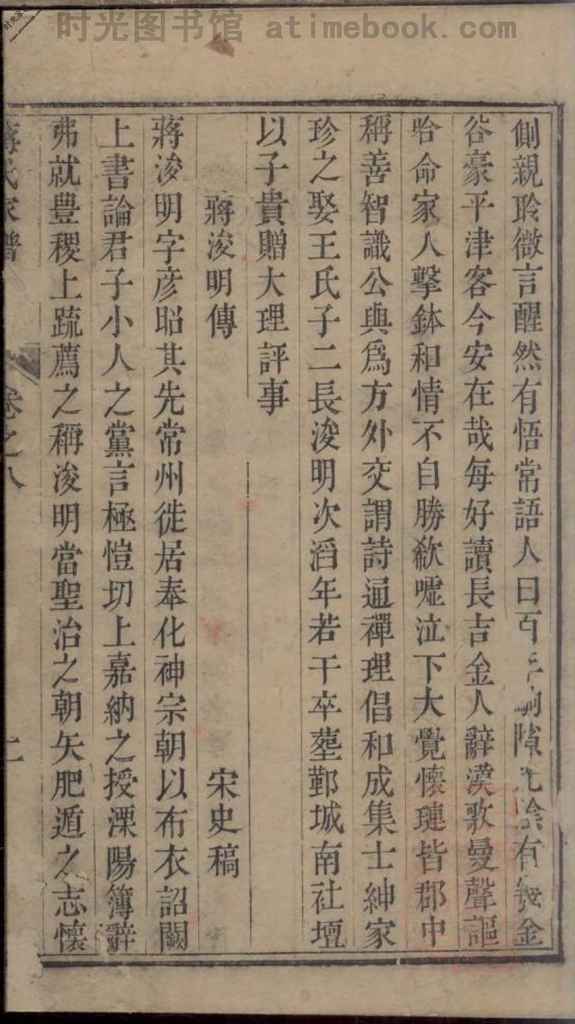 时光图书馆 atimebook.com
側親聆微言醒然有悟常語人曰百隙光陰有幾金
谷豪平津客今安在哉每好讀長吉金人辭漢歌曼聲謳
哈命家人擊鉢和情不自勝欷噓泣下大覺懷璉皆郡中
稱善智識公與爲方外交謂詩通禪理倡和成集士紳家
珍之娶王氏子二長浚明次滔年若干卒塟鄞城南社壇
以子貴贈大理評事
蔣浚明傳 宋史稿
蔣浚明字彥昭其先常州徙居奉化神宗朝以布衣詔闕
上書論君子小人之黨言極愷切上嘉納之授溧陽簿辭
弗就豊稷上䟽薦之稱浚明當聖治之朝矢肥遁之志懷
蔣氏家譜 卷之八